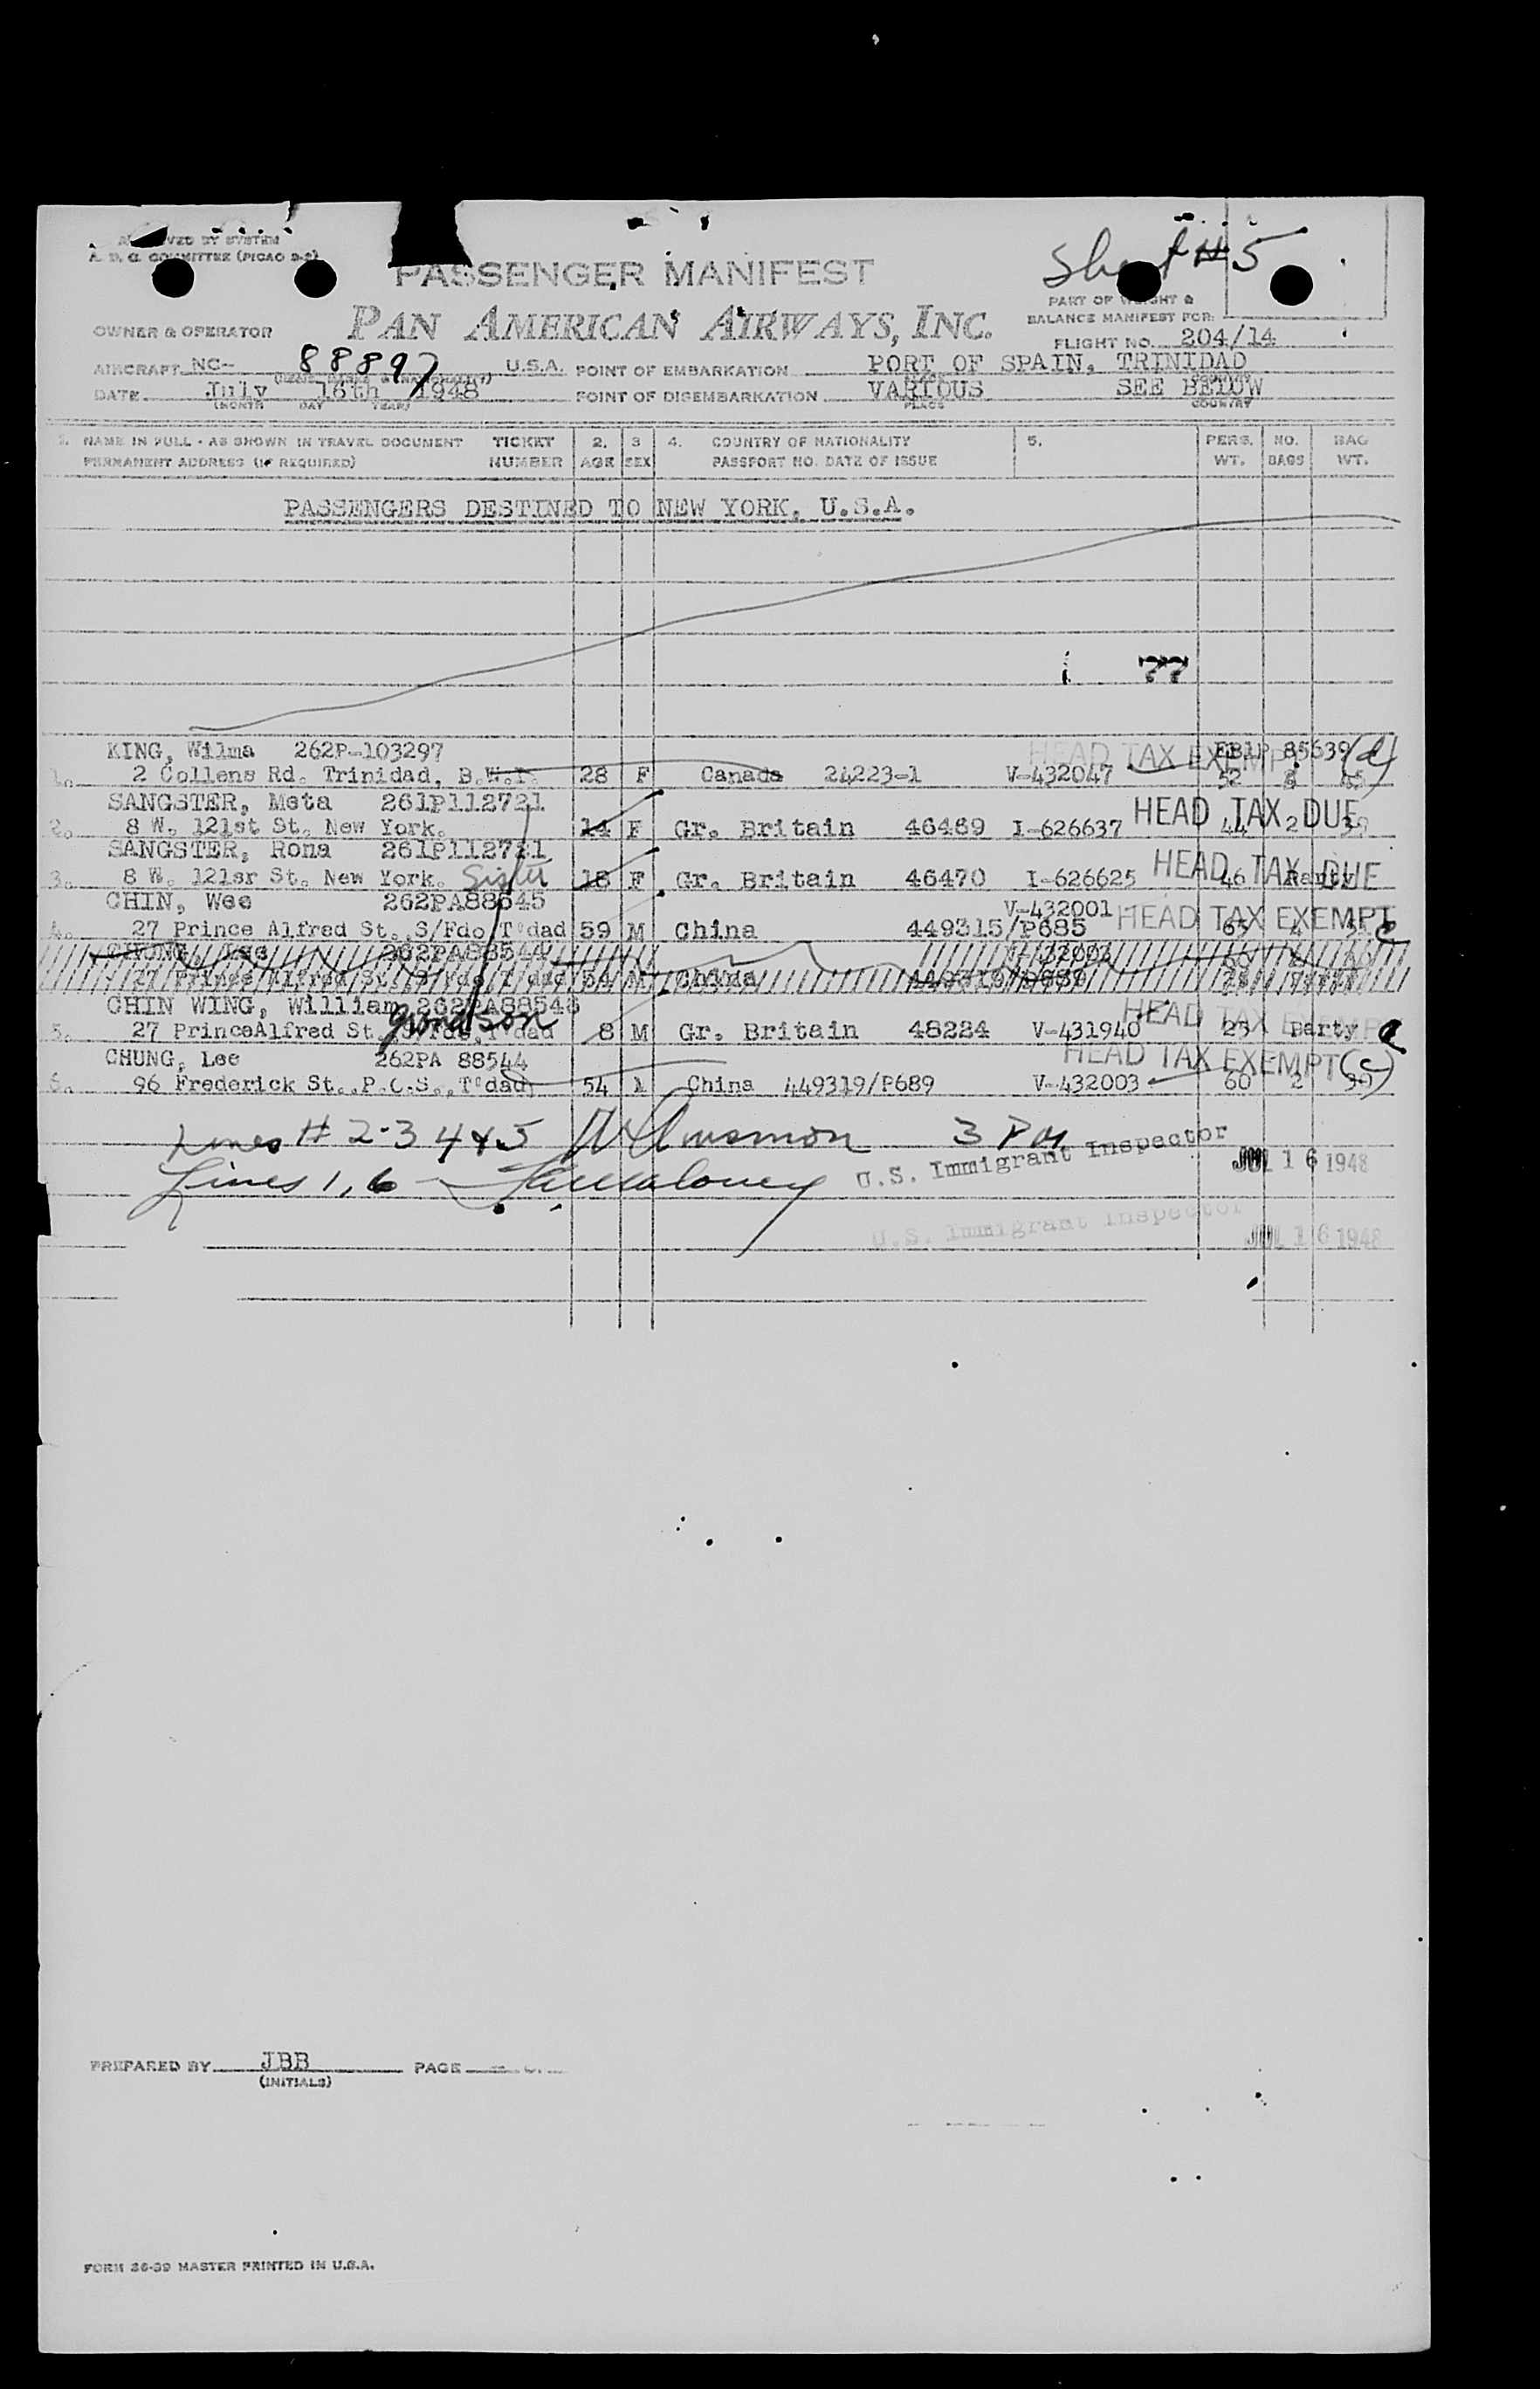 Sheet #5
A. D. Q. COMMITTEE (PICAO 9-2)
PASSENGER MANIFEST
PART OF WEIGHT &
BALANCE MANIFEST FOR:
OWNER & OPERATOR PAN AMERICAN AIRWAYS, INC.
FLIGHT NO. 204/14
AIRCRAFT NC- 88897 U.S.A. POINT OF EMBARKATION PORT OF SPAIN, TRINIDAD
DATE July 16th 1948 POINT OF DISEMBARKATION VARIOUS SEE BELOW
(MONTH DAY YEAR) PLACE COUNTRY
1. NAME IN FULL - AS SHOWN IN TRAVEL DOCUMENT TICKET 2. 3 4. COUNTRY OF NATIONALITY 5. PERS. NO. BAG
PERMANENT ADDRESS (IF REQUIRED) NUMBER AGE SEX PASSPORT NO. DATE OF ISSUE WT. BAGS WT.
PASSENGERS DESTINED TO NEW YORK, U.S.A.
KING, Wilma 262P-103297 HEAD TAX EXEMPT 85639 (d)
1. 2 Collens Rd. Trinidad, B.W.I. 28 F Canada 24223-1 V-432047 52
SANGSTER, Meta 261P112721 HEAD TAX DUE
2. 8 W. 121st St. New York. 14 F Gr. Britain 46469 I-626637 44 2
SANGSTER, Rona 261P112721 HEAD TAX DUE
3. 8 W. 121sr St. New York. Sister 18 F Gr. Britain 46470 I-626625 46 Party
CHIN, Wee 262PA88545 V-432001 HEAD TAX EXEMPT
4. 27 Prince Alfred St. S/Fdo, T'dad 59 M China 449315/P685 65 4 c
CHUNG, Lee 262PA88544
27 Prince Alfred St. 54 M China 449319/P689
CHIN WING, William 262PA88546 HEAD TAX EXEMPT
grandson
5. 27 PrinceAlfred St. S/Fdo, T'dad 8 M Gr. Britain 48224 V-431940 25 Party
CHUNG, Lee 262PA 88544 HEAD TAX EXEMPT (c)
6. 96 Frederick St. P.O.S., T'dad 54 China 449319/P689 V-432003 60 2
Lines # 2-3 4 & 5 3 PM
U.S. Immigrant Inspector JUL 16 1948
Lines 1, 6
U.S. Immigrant Inspector JUL 16 1948
PREPARED BY JBB PAGE
(INITIALS)
FORM 36-39 MASTER PRINTED IN U.S.A.